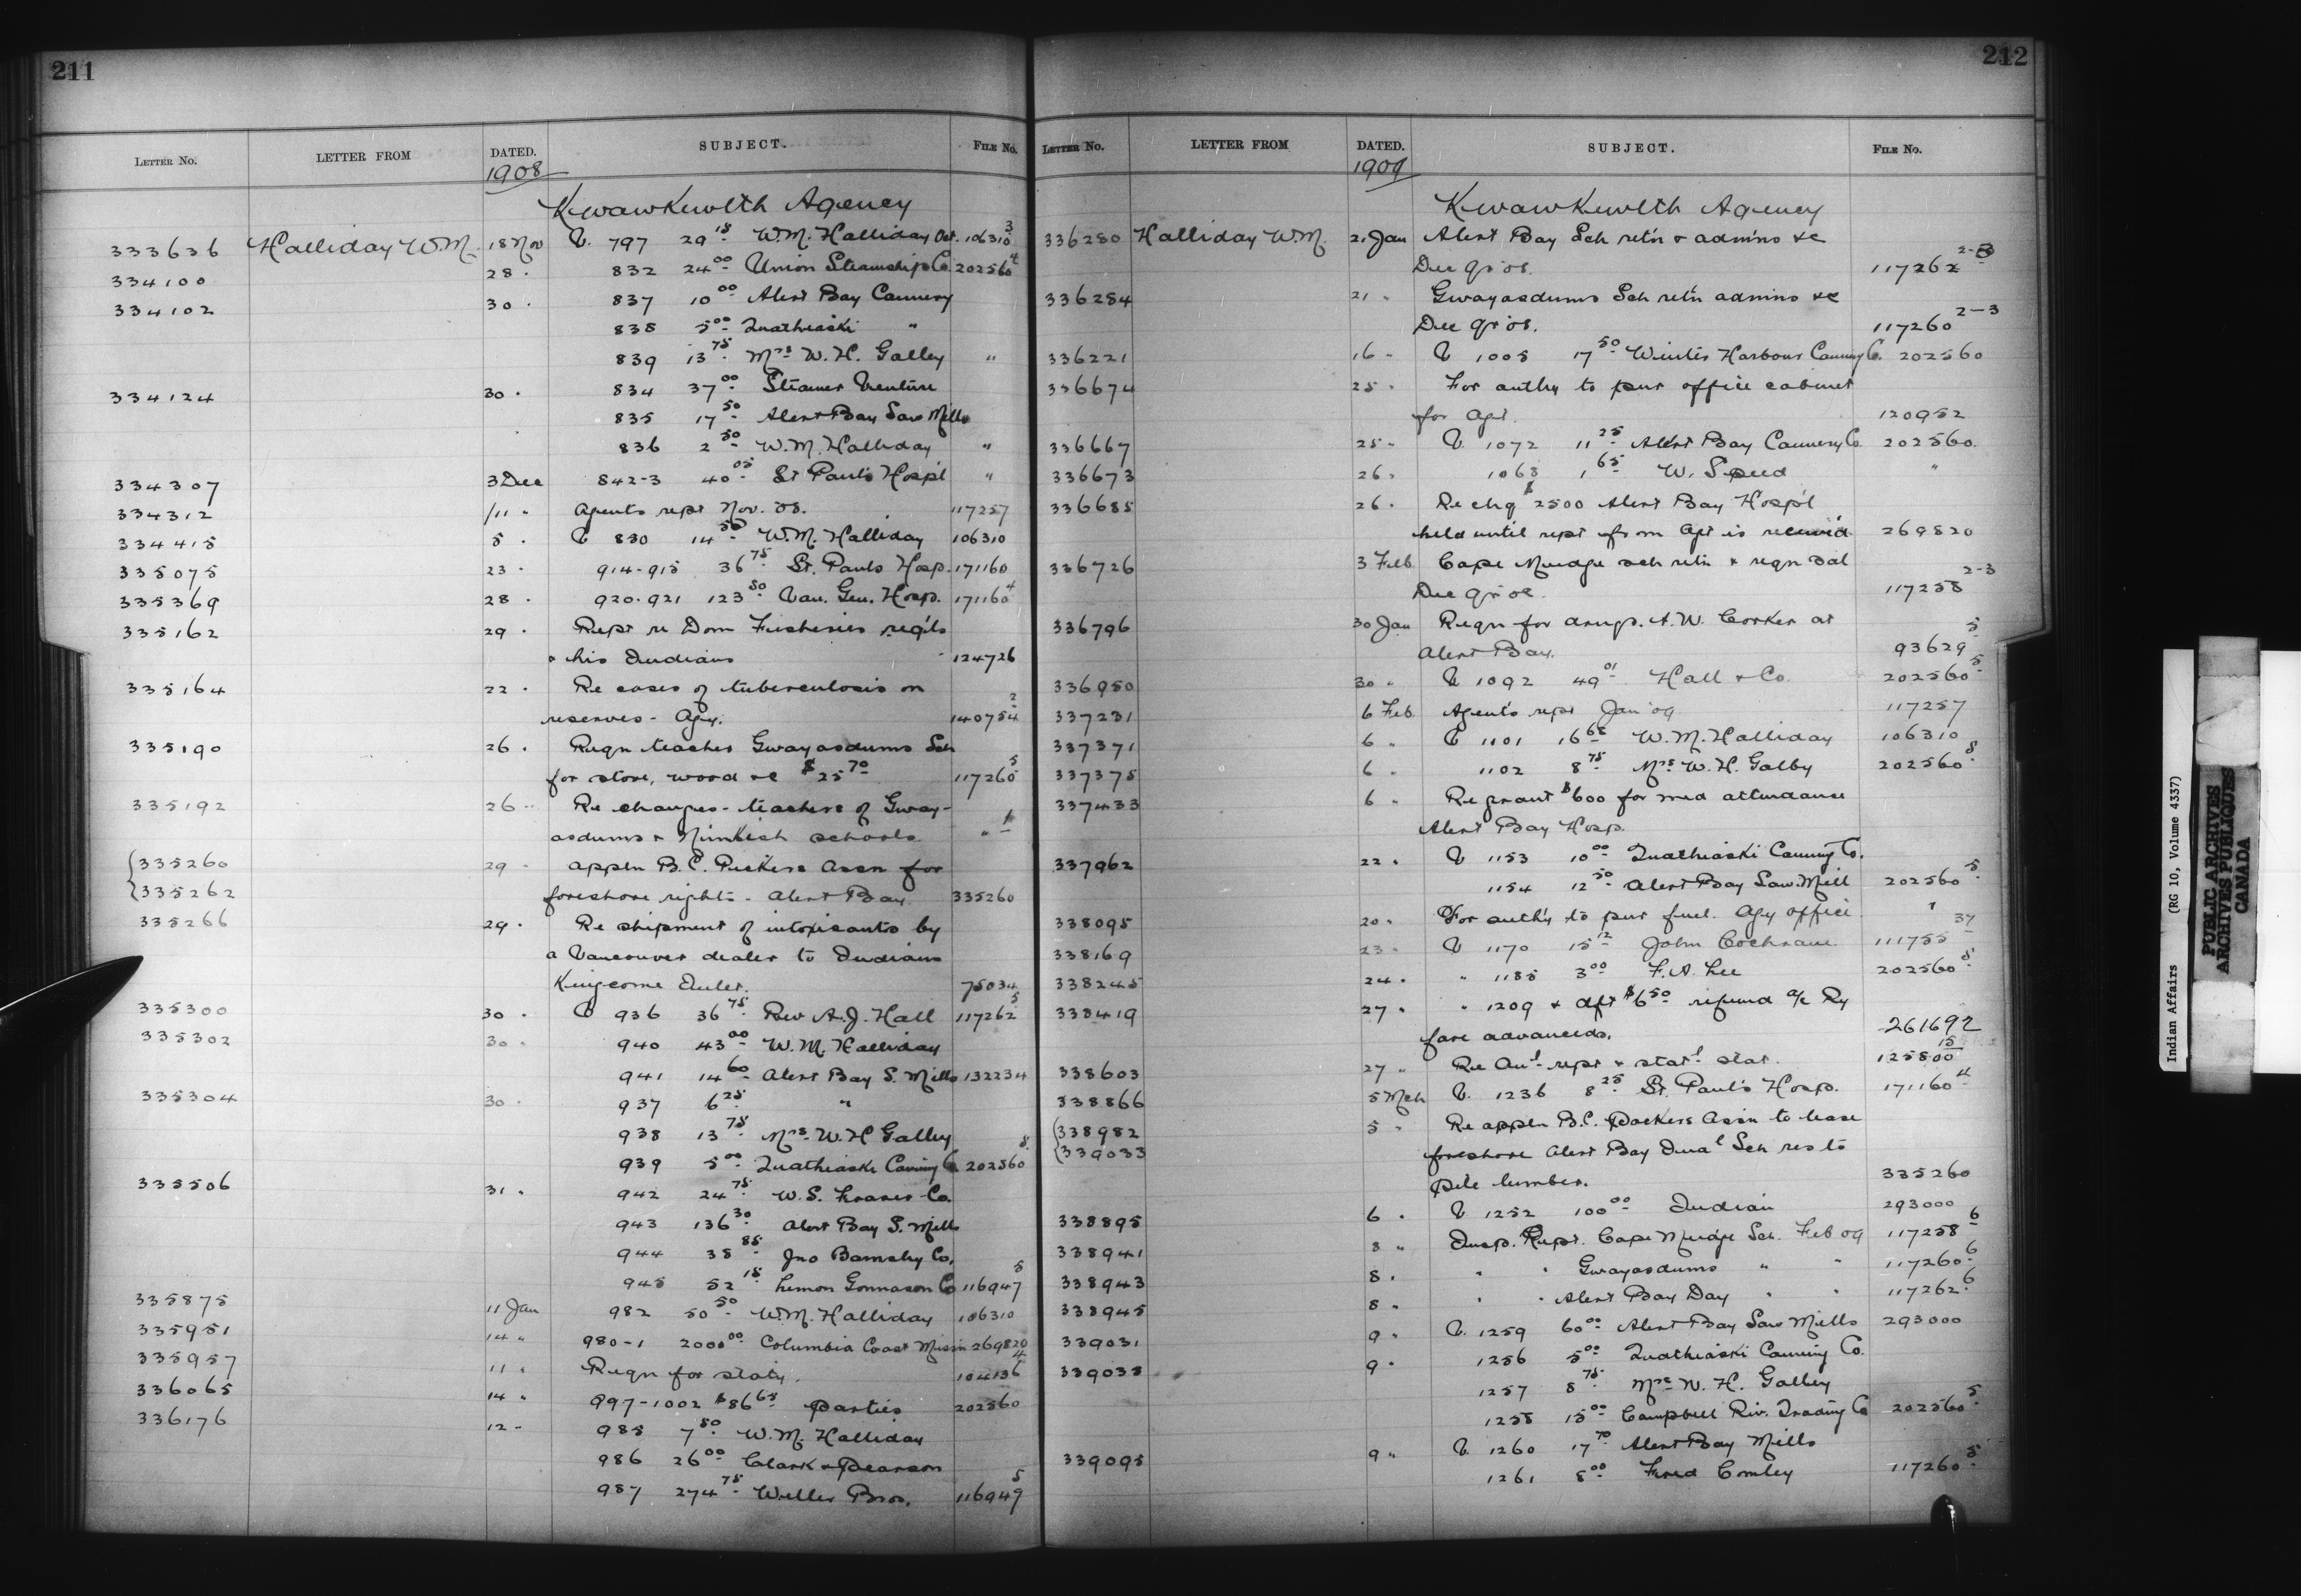 211
LETTER NO. LETTER FROM DATED. SUBJECT. FILE NO.
1908
Kwawkewlth Agency
333636 Halliday W.M. 18 Nov V. 797 29 15 W.M. Halliday Oct. 106310 3
334100 28 " 832 24 00 Union Steamship Co 202560 4
334102 30 " 837 10 00 Alert Bay Cannery
838 5 00 Quathiaski "
839 13 75 Mrs W.H. Galley "
334124 30 " 834 37 00 Steamer Venture
835 17 50 Alert Bay Saw Mills
836 2 50 W.M. Halliday "
334307 3 Dec 842-3 40 05 St Paul's Hospl "
334312 /11 " Agents rept Nov. 08. 117257
334415 5 " V 830 14 50 W.M. Halliday 106310
335075 23 " 914-915 36 75 St. Pauls Hosp. 171160
335369 28 " 920-921 123 50 Van. Gen. Hosp. 171160 4
335162 29 " Rept re Dom Fisheries regls
& his Indians 124726
335164 22 " Re cases of tuberculosis on
reserves - Agy. 140754 2
335190 26 " Reqn teacher Gwayasdums Sch
for stove, wood &c $25 70 117260 5
335192 26 " Re changes - teachers of Gway-
asdums & Nimkish schools " 1
335260 29 " appln B.C. Packers Assn for
335262 foreshore rights - Alert Bay 335260
335266 29 " Re shipment of intoxicants by
a Vancouver dealer to Indians
Kingcome Inlet. 75034
335300 30 " V 936 36 75 Rev A.J. Hall 117262 5
335302 30 " 940 43 00 W.M. Halliday
941 14 60 Alert Bay S. Mills 132234
335304 30 " 937 6 25 "
938 13 75 Mrs. W.H Galley
939 5 00 Quathiaski Canning Co 202560 5
335506 31 " 942 24 75 W.S. Fraser Co.
943 136 30 Alert Bay S. Mills
944 38 85 Jno Barnsley Co.
945 52 15 Lemon Gonnason Co 116947 5
335875 11 Jan 982 50 50 W.M. Halliday 106310
335951 14 " 980-1 2000 00 Columbia Coast Missin 269820
335957 11 " Reqn for staty. 104136 4
336065 14 " 997-1002 $86 65 parties 202560
336176 12 " 985 7 50 W.M. Halliday
986 26 00 Clark & Pearson
987 274 75 Weller Bros. 116947 5
212
LETTER NO. LETTER FROM DATED. SUBJECT. FILE NO.
1909
Kwawkewlth Agency
336280 Halliday W.M. 21 Jan Alert Bay Sch retn & admns &c
Dec qr 08. 117262 2-3
336284 21 " Gwayasdums Sch retn admns &c
Dec qr 08. 117260 2-3
336221 16 " V 1005 17 50 Winter Harbour Canning Co. 202560
336674 25 " For authy to pur office cabinet
for Agt. 120952
336667 25 " V 1072 11 25 Alert Bay Cannery Co 202560.
336673 26 " 1068 1 65 W. Speed "
336685 26 " Re chq $2500 Alert Bay Hospl
held until rept from Agt is received 269820
336726 3 Feb Cape Mudge sch retn & reqn sal
Dec qr 08. 117258 2-3
336796 30 Jan Reqn for drugs. A.W. Corker at
Alert Bay. 93629 5
336950 30 " V 1092 49 01 Hall & Co. 202560 5
337231 6 Feb Agents rept Jan 09 117257
337371 6 " V 1101 16 65 W.M. Halliday 106310
337375 6 " 1102 8 75 Mrs W.H. Galby 202560 5
337433 6 " Re grant $600 for med attendance
Alert Bay Hosp.
337962 22 " V 1153 10 00 Quathiaski Canning Co.
1154 12 50 Alert Bay Saw Mill 202560 5
338095 20 " For authy to pur fuel. Agy office "
338169 23 " V 1170 15 12 John Cochrane 111755 37
338245 24 " " 1185 3 00 F.A. Lee 202560 5
338419 27 " " 1209 & dft $6 50 refund a/c Ry
fare advanced. 261692
338603 27 " Re Anl rept & statl stat. 125800 15
338866 5 Mch V. 1236 8 25 St. Paul's Hosp. 171160 4
338982 5 " Re appln B.C. Packers Assn to lease
339033 foreshore Alert Bay Indal Sch res to
pile lumber. 335260
338895 6 " V 1252 100 00 Indian 293000
338941 8 " Insp. Rept. Cape Mudge Sch. Feb 09 117258 6
338943 8 " " " Gwayasdums " " 117260 6
338945 8 " " " Alert Bay Day " " 117262 6
339031 9 " V. 1259 60 00 Alert Bay Saw Mills 293000
339038 9 " 1256 5 00 Quathiaski Canning Co.
1257 8 75 Mrs W.H. Galley
1258 15 00 Campbell Riv. Trading Co 202560 5
339095 9 " V. 1260 17 70 Alert Bay Mills
1261 8 00 Fred Comley 117260 5
Indian Affairs (RG 10, Volume 4337)
PUBLIC ARCHIVES
ARCHIVES PUBLIQUES
CANADA